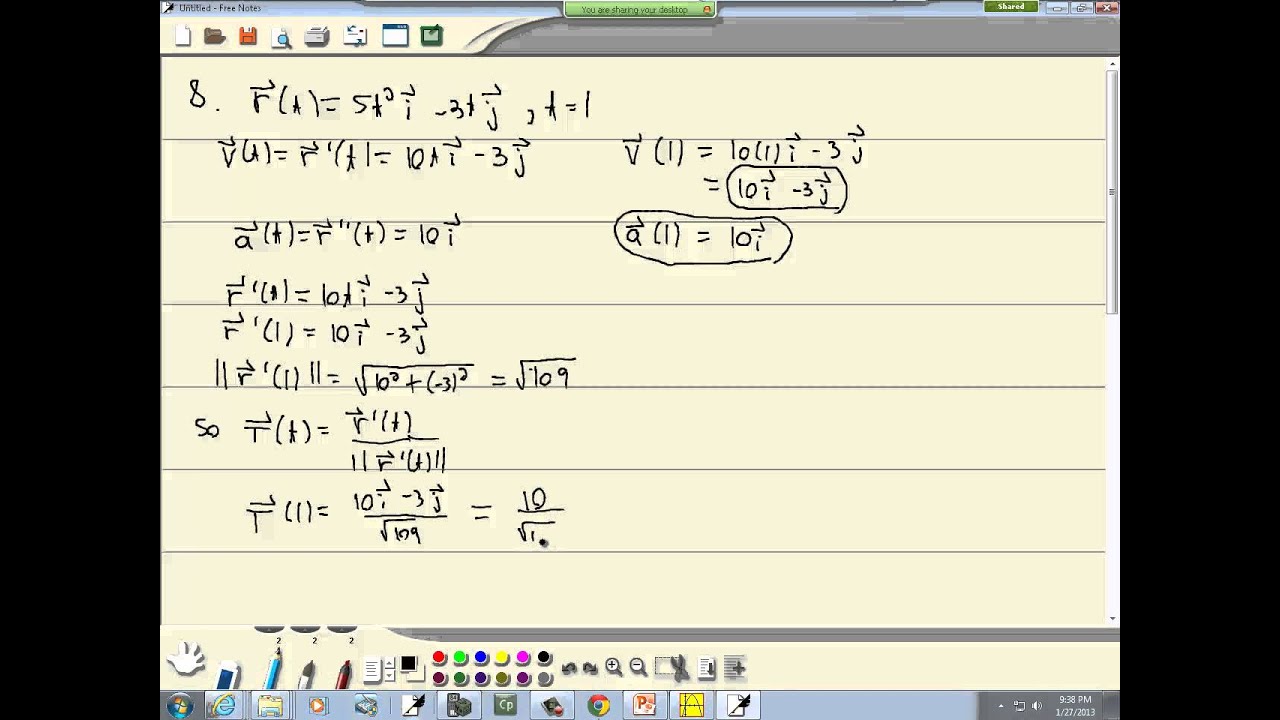 Untitled - Free Notes
You are sharing your desktop
Shared
8. r⃗(t) = 5t² i⃗ - 3t j⃗ , t = 1
v⃗(t) = r⃗ '(t) = 10t i⃗ - 3 j⃗
v⃗(1) = 10(1) i⃗ - 3 j⃗
= 10 i⃗ - 3 j⃗
a⃗(t) = r⃗ ''(t) = 10 i⃗
a⃗(1) = 10 i⃗
r⃗ '(t) = 10t i⃗ - 3 j⃗
r⃗ '(1) = 10 i⃗ - 3 j⃗
|| r⃗ '(1) || = √(10² + (-3)²) = √109
so T⃗(t) = r⃗ '(t) / || r⃗ '(t) ||
T⃗(1) = (10 i⃗ - 3 j⃗) / √109 = 10 / √1
2 2 2
Cp
9:38 PM
1/27/2013